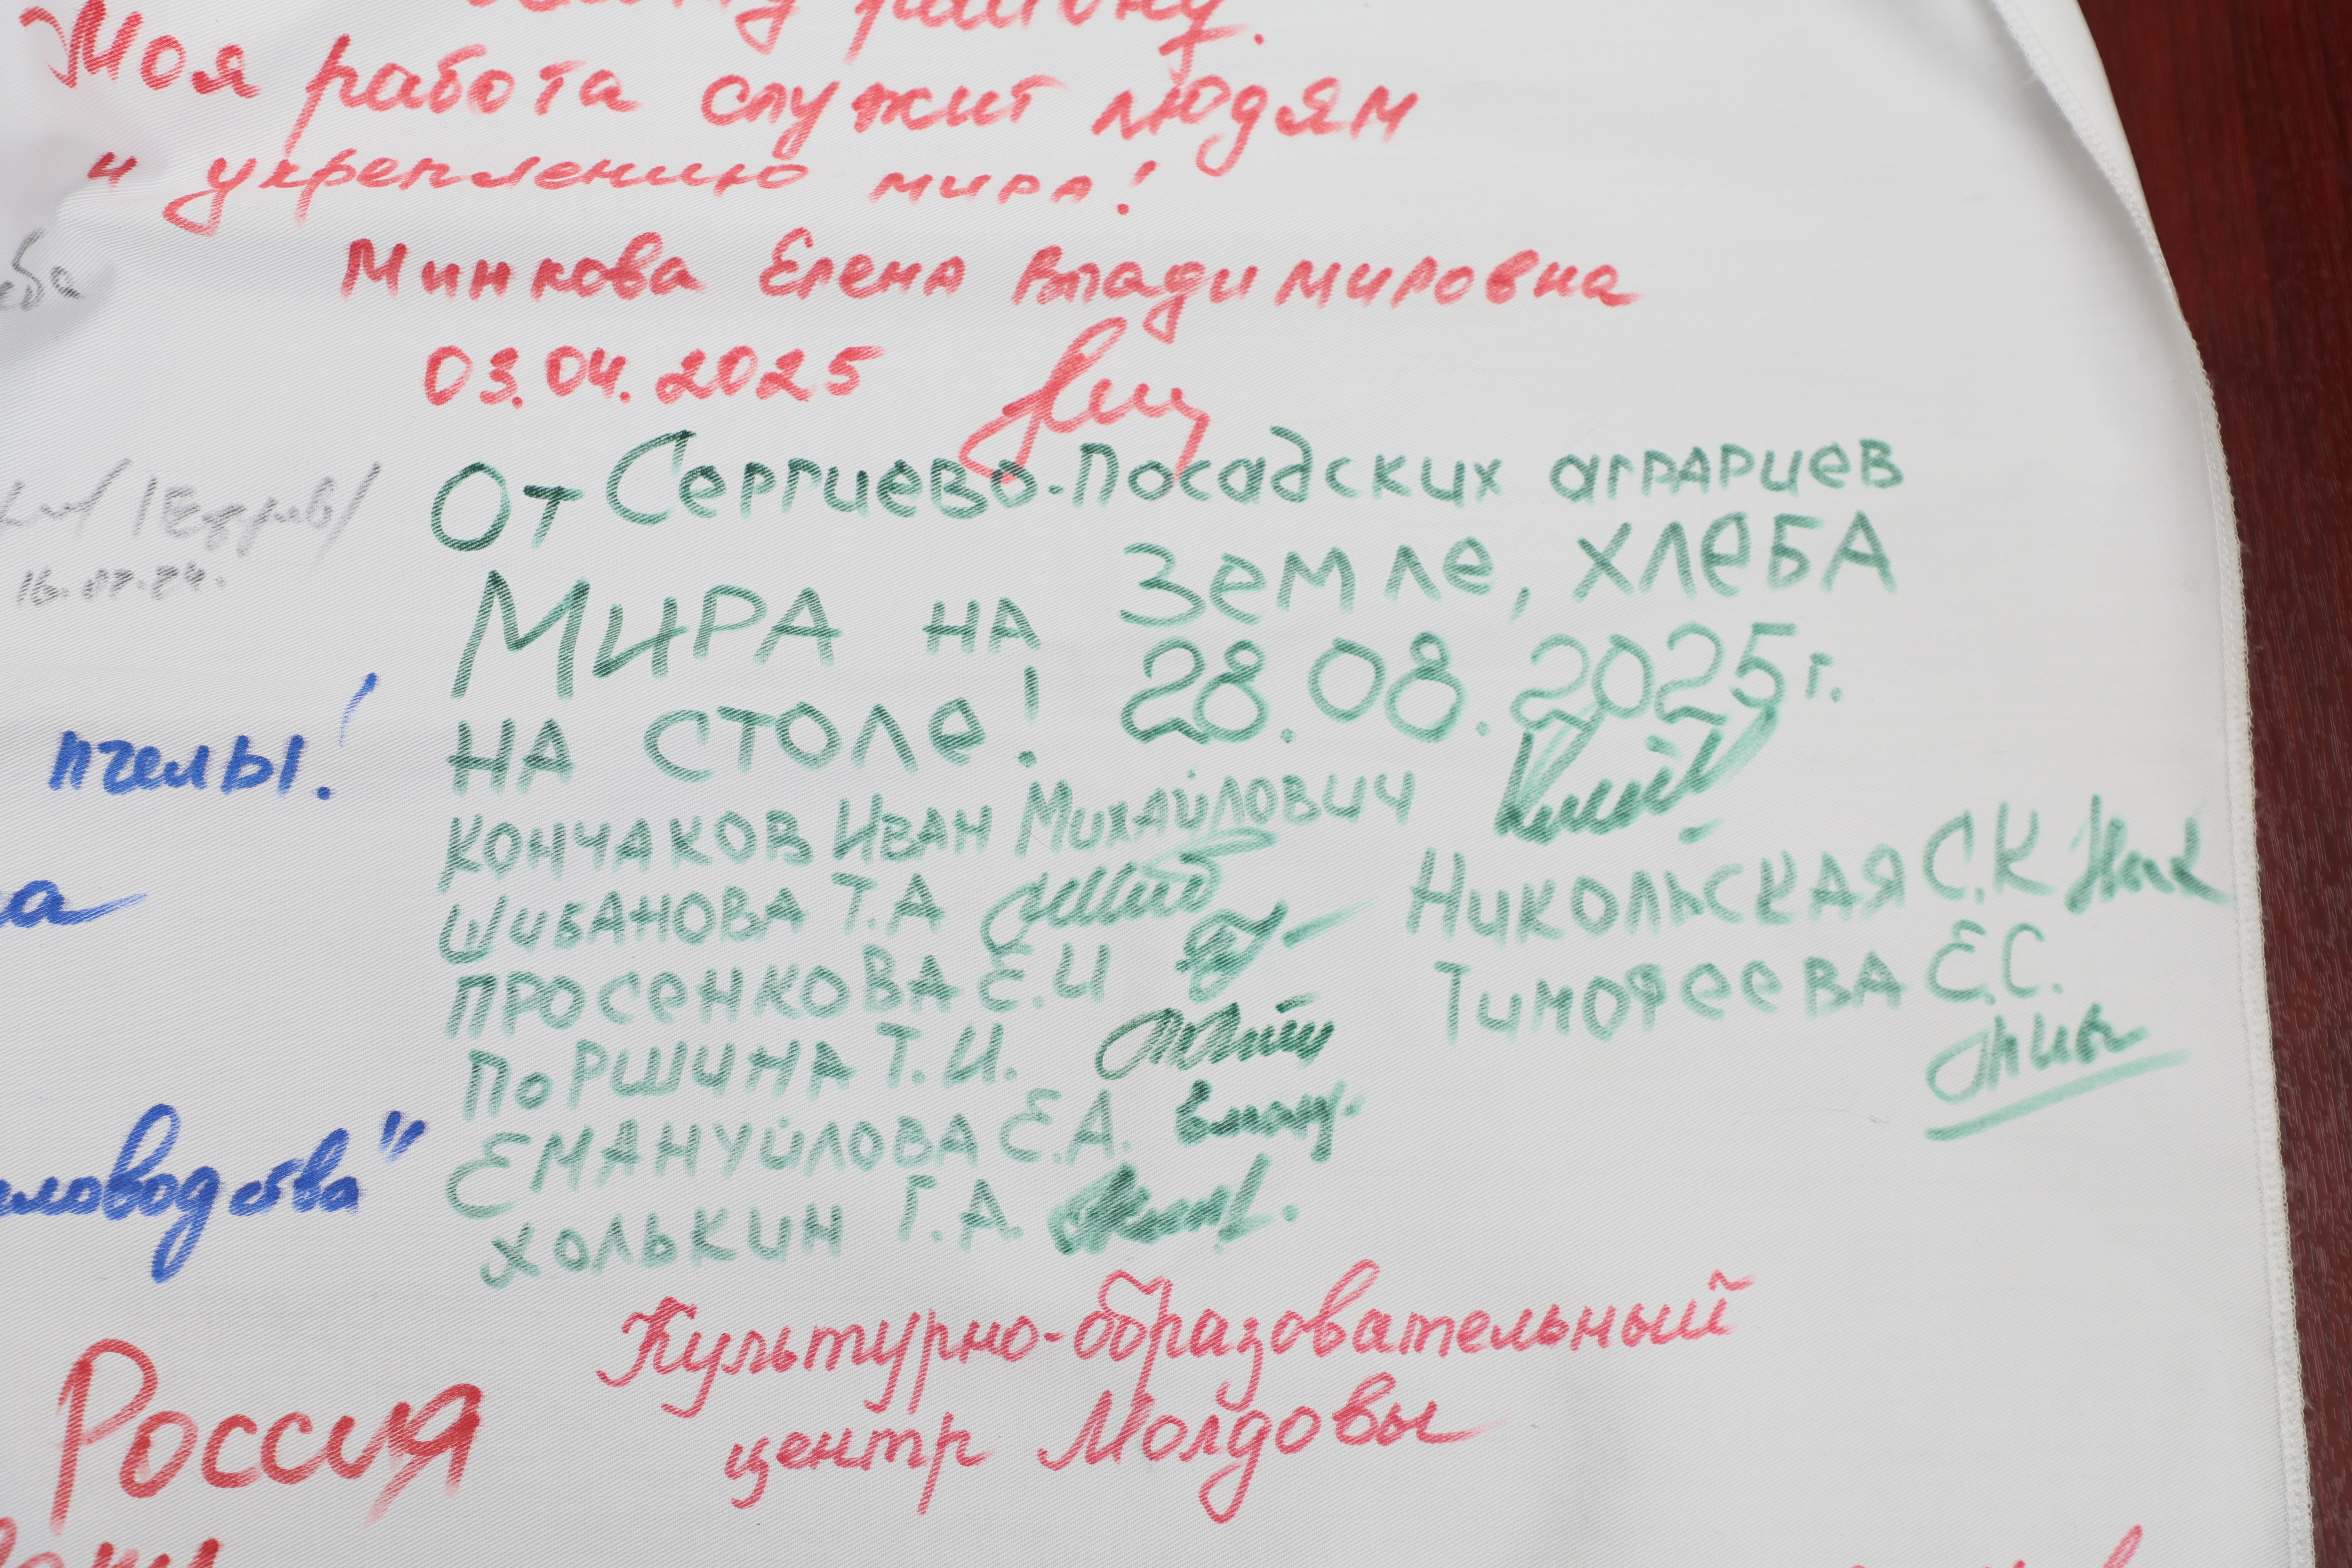 району.
Моя работа служит людям
и укреплению мира!
Минкова Елена Владимировна
03.04.2025
От Сергиево-Посадских аграриев
Мира на Земле, хлеба
на столе! 28.08.2025 г.
Кончаков Иван Михайлович
Шибанова Т.А
Просенкова Е.И
Поршина Т.И.
Емануйлова Е.А.
Холькин Г.А
Никольская С.К
Тимофеева Е.С.
пчелы!
Культурно-образовательный
центр Молдовы
Россия